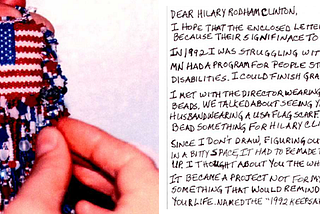 DEAR HILARY RODHAM CLINTON,
I HOPE THAT THE ENCLOSED LETTE
BECAUSE THEIR SIGNIFINACE TO
IN 1992 I WAS STRUGGLING WIT
MN HAD A PROGRAM FOR PEOPLE ST
DISABILITIES. I COULD FINISH GRA
I MET WITH THE DIRECTOR WEARING
BEADS, WE TALKED ABOUT SEEING Y
HUSBAND WEARING A USA FLAG SCARF
BEAD SOMETHING FOR HILARY CL
SINCE I DON'T DRAW, FIGURING OU
IN A BITTY SPACE, IT HAD TO BE MADE
UP. I THOUGHT ABOUT YOU THE WH
IT BECAME A PROJECT NOT FOR MY
SOMETHING THAT WOULD REMIND
YOUR LIFE. NAMED THE "1992 KEEPSA